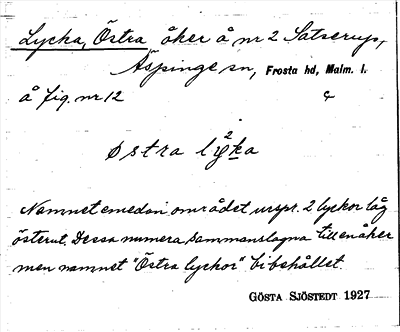 Lycka, Östra åker å nr 2 Satserup,
Äspinge sn, Frosta hd, Malm. l.
å fig. nr 12
østra lyka
2
Namnet emedan området urspr. 2 lyckor låg
österut. Dessa numera sammanslagna till en åker
men namnet "Östra lyckor" bibehållet.
GÖSTA SJÖSTEDT 1927